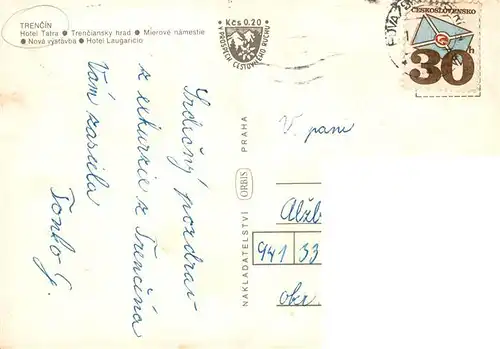 TRENČÍN
Hotel Tatra ● Trenčiansky hrad ● Mierové námestie
● Nová výstavba ● Hotel Laugaricio
Kčs 0.20
V PROSPECH CESTOVNÉHO RUCHU
ČESKOSLOVENSKO
30 h
Srdečný pozdrav
z exkurzie z Trenčína
Vám zasiela
Tonko G.
NAKLADATELSTVÍ ORBIS PRAHA
V. pani
Alžb
941 33
okr.